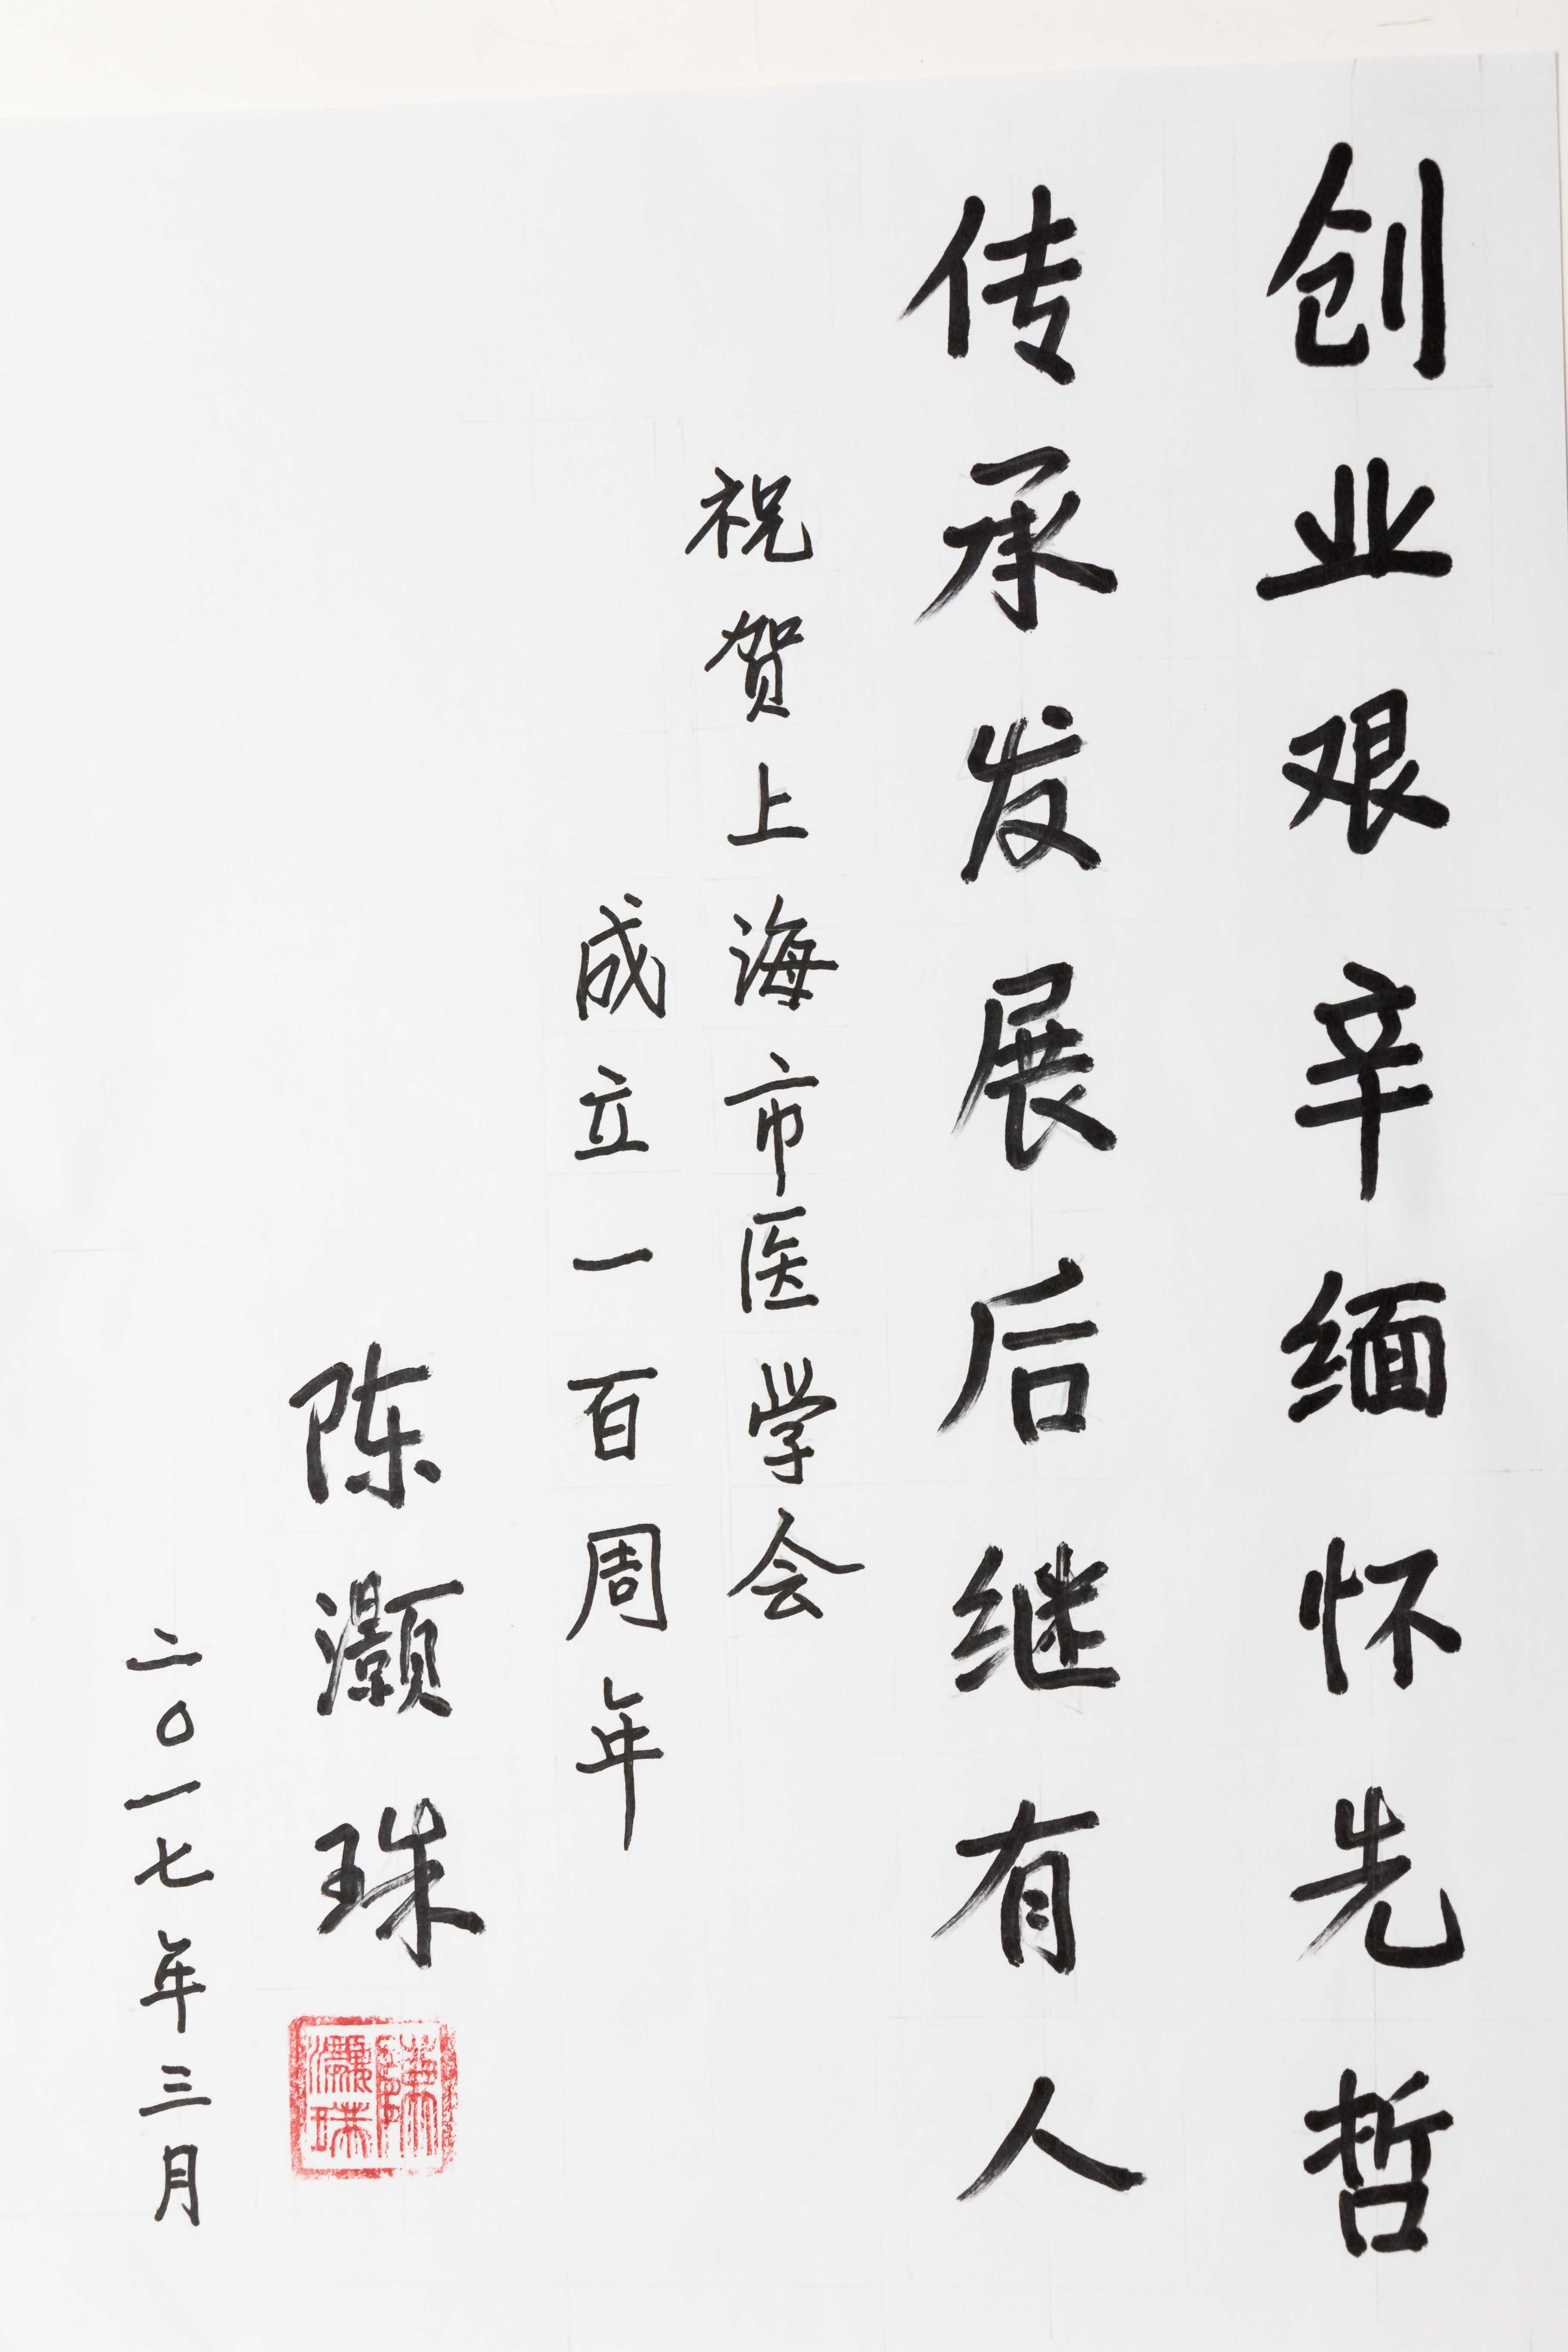 创业艰辛缅怀先哲
传承发展后继有人
祝贺上海市医学会
成立一百周年
陈灏珠
二〇一七年三月
陳灝珠